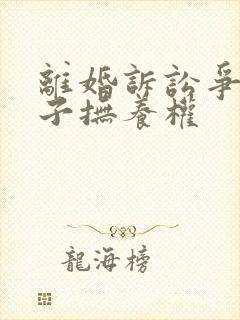 離婚訴訟爭
子撫養權
龍海榜